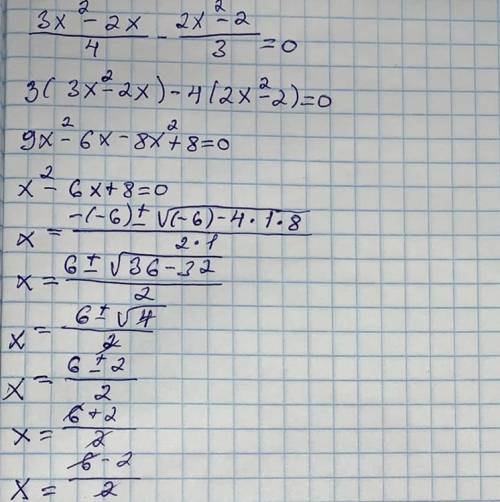 (3x² - 2x)/4 - (2x² - 2)/3 = 0
3(3x² - 2x) - 4(2x² - 2) = 0
9x² - 6x - 8x² + 8 = 0
x² - 6x + 8 = 0
x = (-(-6) ± √((-6) - 4·1·8))/(2·1)
x = (6 ± √(36 - 32))/2
x = (6 ± √4)/2
x = (6 ± 2)/2
x = (6 + 2)/2
x = (6 - 2)/2